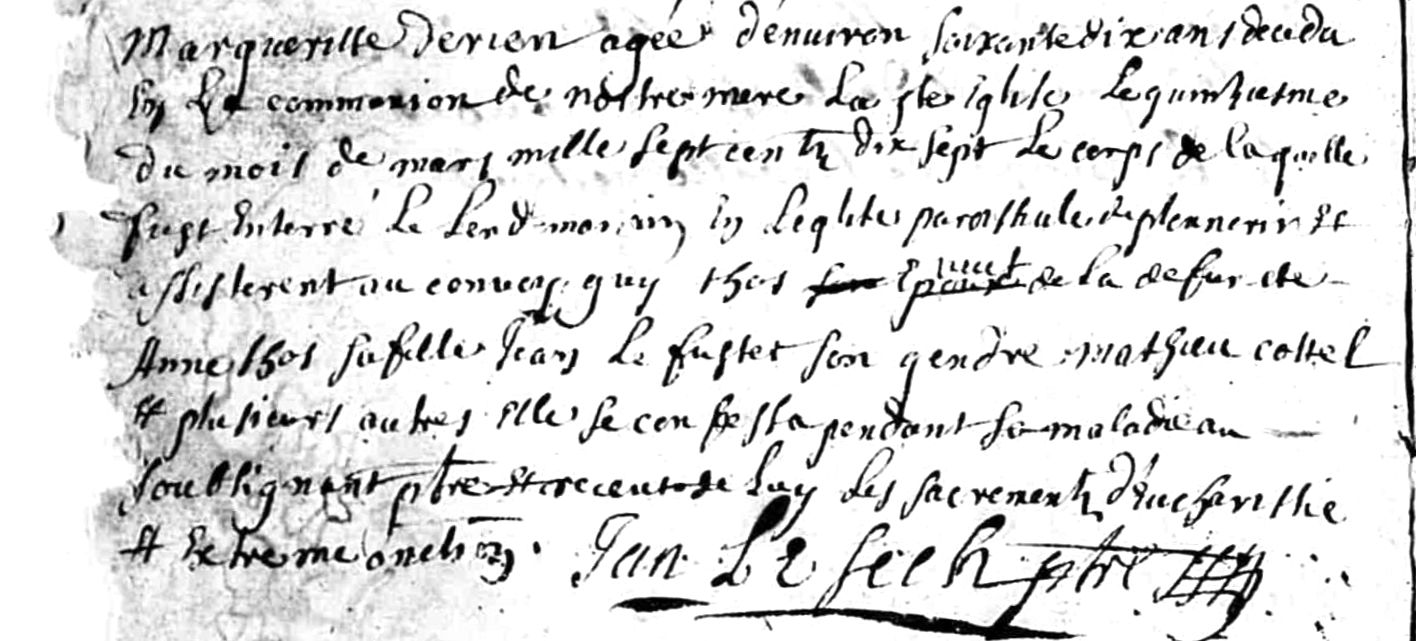 Margueritte derien agée d'enuiron soixante dix ans deceda
En La communion de nostre mere La ste Eglise Le quinziesme
du mois de mars mille sept cents dix sept Le corps de laquelle
fust Enterré Le Lendemain En Leglise paroishiale, de
assisterent au convoy, guy thos veuf de La defuncte
Anne thos sa fille Jean Le fustec son gendre mathieu cottel
Et plusieurs autres Elle se confessa pendant sa maladie au
soubsignant ptre Et receut de Luy Les sacrements d'Eucharistie
Et Extreme onction. Jan Le sech ptre